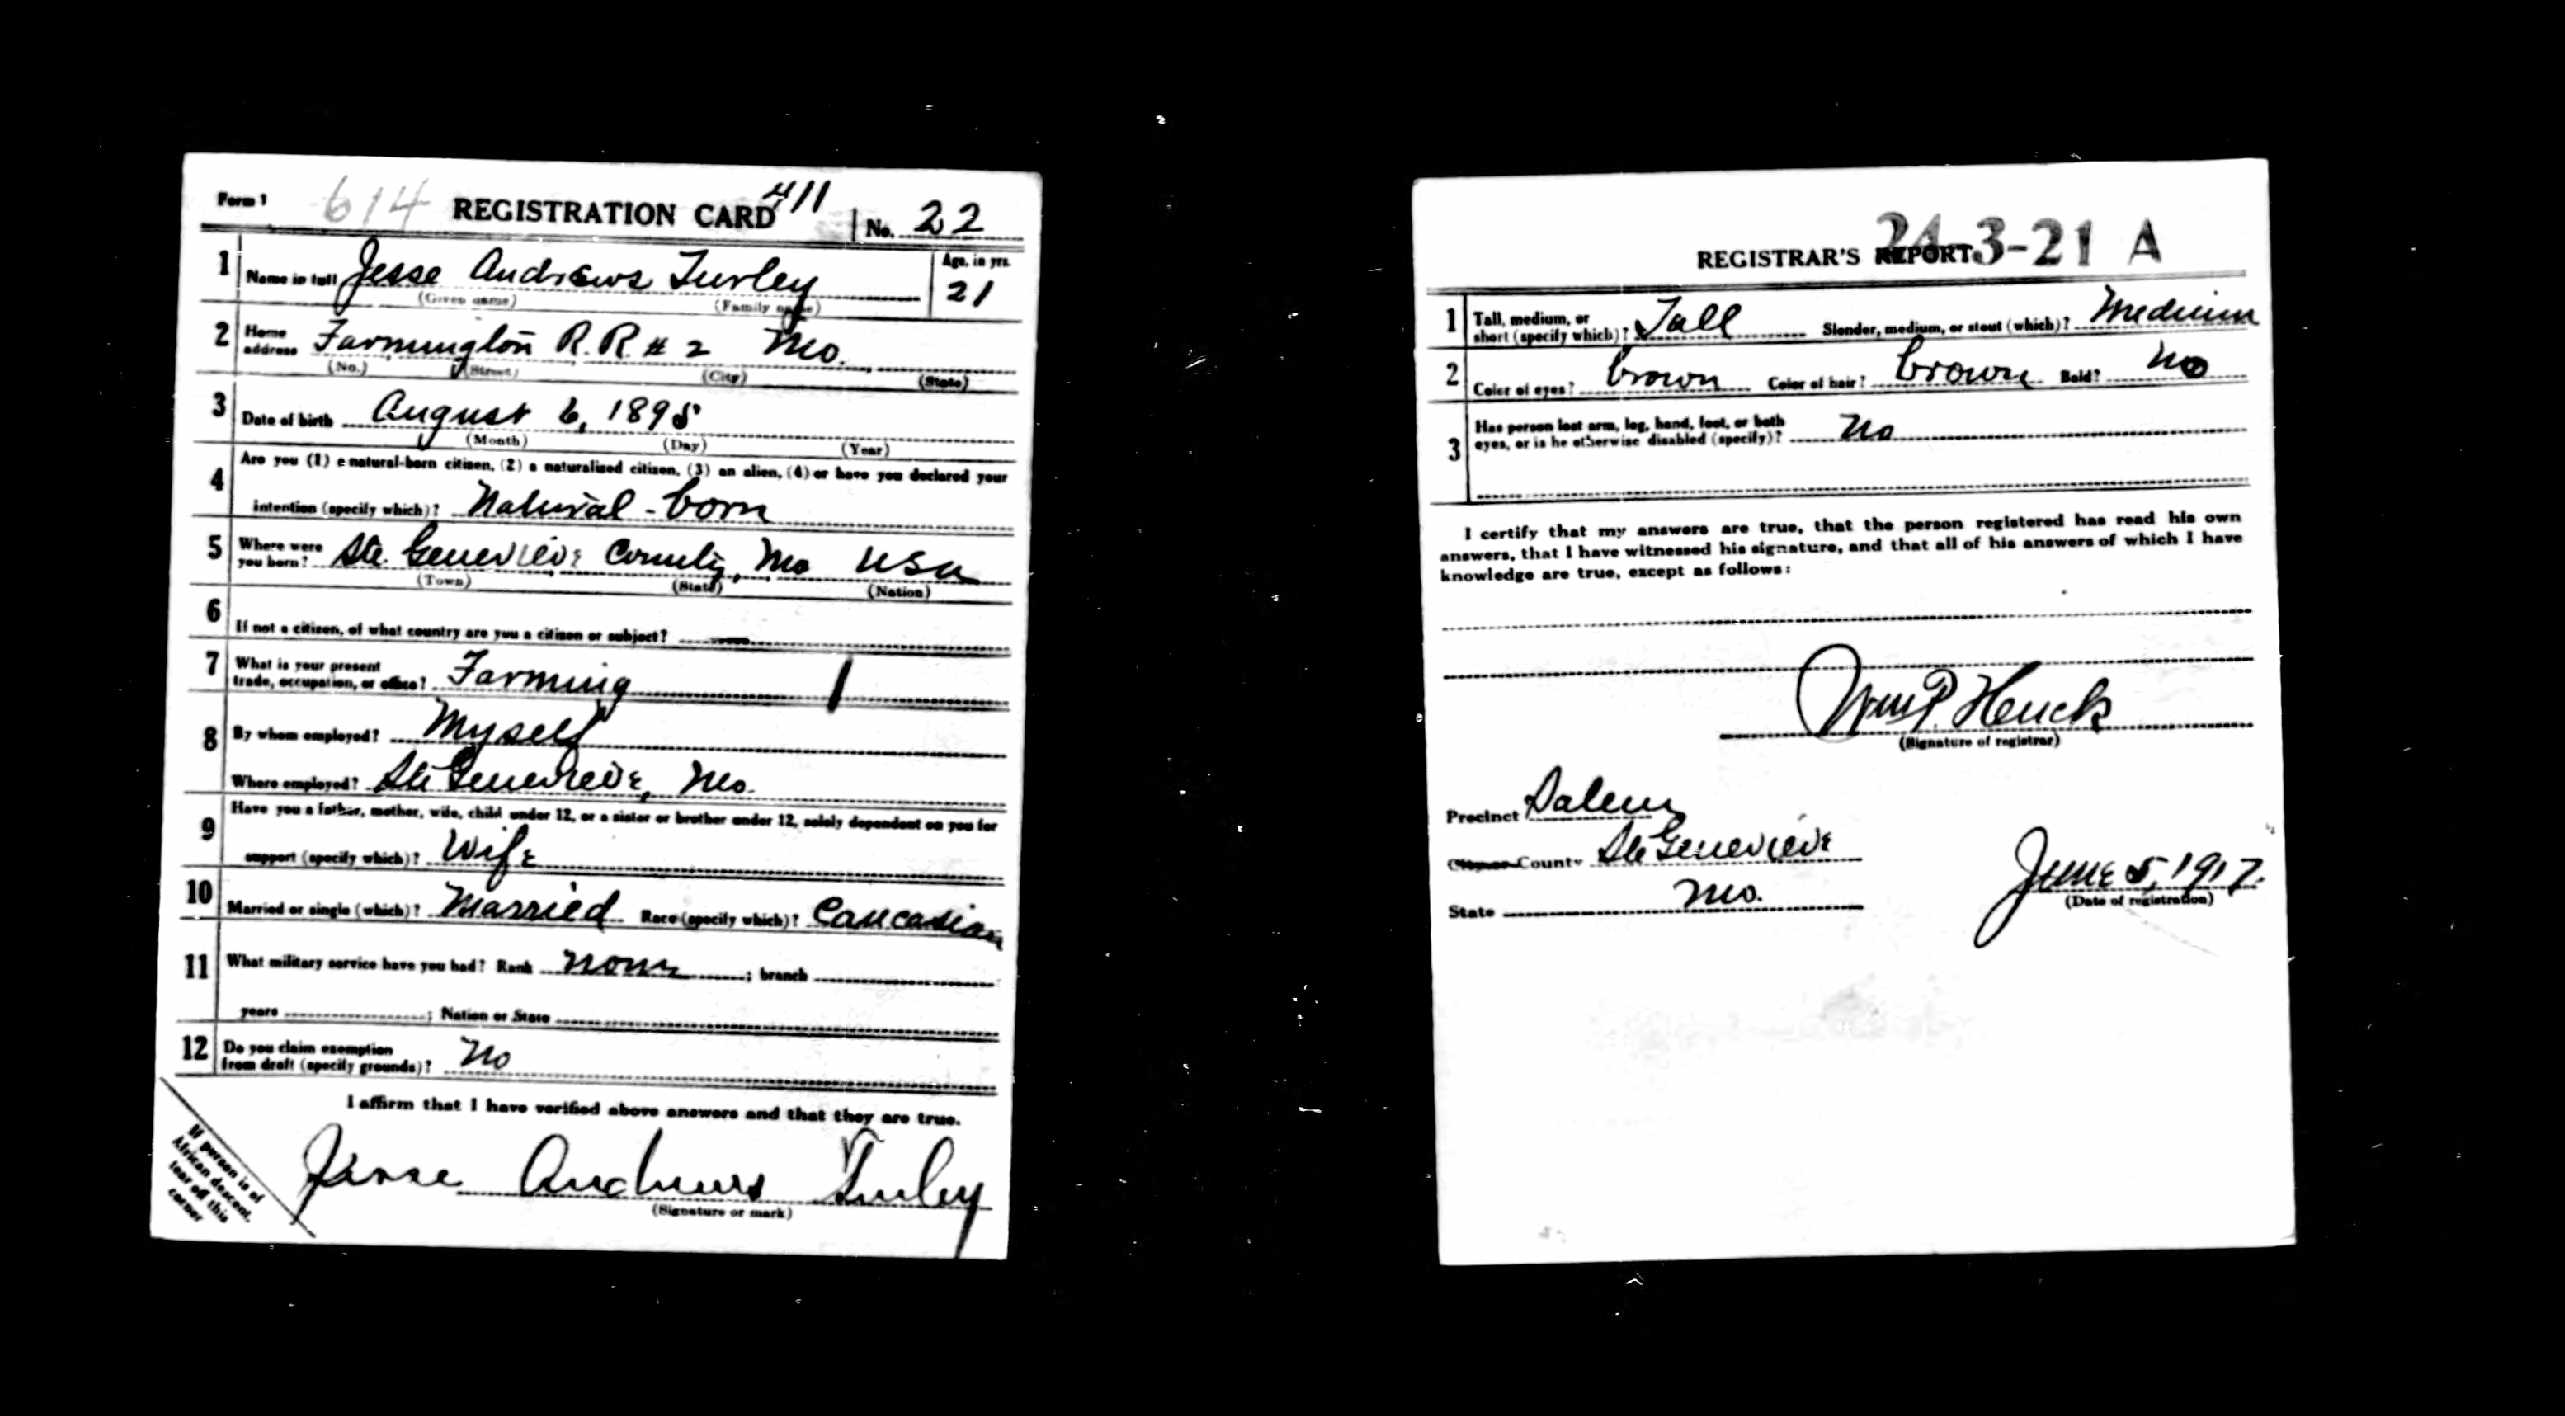 Form 1 614 REGISTRATION CARD 411 No. 22
1 Name in full Jesse Andrews Turley Age, in yrs. 21
(Given name) (Family name)
2 Home address Farmington R. R. # 2 Mo.
(No.) (Street) (City) (State)
3 Date of birth August 6, 1895
(Month) (Day) (Year)
4 Are you (1) a natural-born citizen, (2) a naturalized citizen, (3) an alien, (4) or have you declared your
intention (specify which)? Natural-born
5 Where were you born? Ste. Genevieve County, Mo USA
(Town) (State) (Nation)
6 If not a citizen, of what country are you a citizen or subject?
7 What is your present
trade, occupation, or office? Farming
8 By whom employed? Myself
Where employed? Ste Genevieve, Mo.
9 Have you a father, mother, wife, child under 12, or a sister or brother under 12, solely dependent on you for
support (specify which)? Wife
10 Married or single (which)? Married Race (specify which)? Caucasian
11 What military service have you had? Rank none ; branch
years ; Nation or State
12 Do you claim exemption
from draft (specify grounds)? No
I affirm that I have verified above answers and that they are true.
Jesse Andrews Turley
(Signature or mark)
If person is of
African descent,
tear off this
corner
24-3-21 A
REGISTRAR'S REPORT
1 Tall, medium, or
short (specify which)? Tall Slender, medium, or stout (which)? Medium
2 Color of eyes? brown Color of hair? brown Bald? no
3 Has person lost arm, leg, hand, foot, or both
eyes, or is he otherwise disabled (specify)? no
I certify that my answers are true, that the person registered has read his own
answers, that I have witnessed his signature, and that all of his answers of which I have
knowledge are true, except as follows:
Wm P. Huck
(Signature of registrar)
Precinct Salem
City or County Ste Genevieve
State Mo.
June 5, 1917.
(Date of registration)